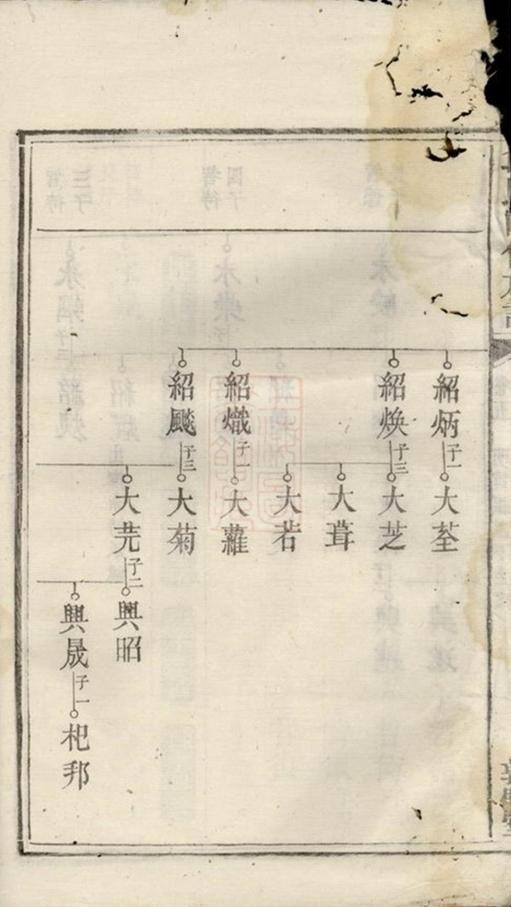 紹炳子一大荃
紹煥子三大芝
大葺
大若
紹熾子一大蘿
紹飈子三大菊
大芫子二興昭
興晟子一杞邦